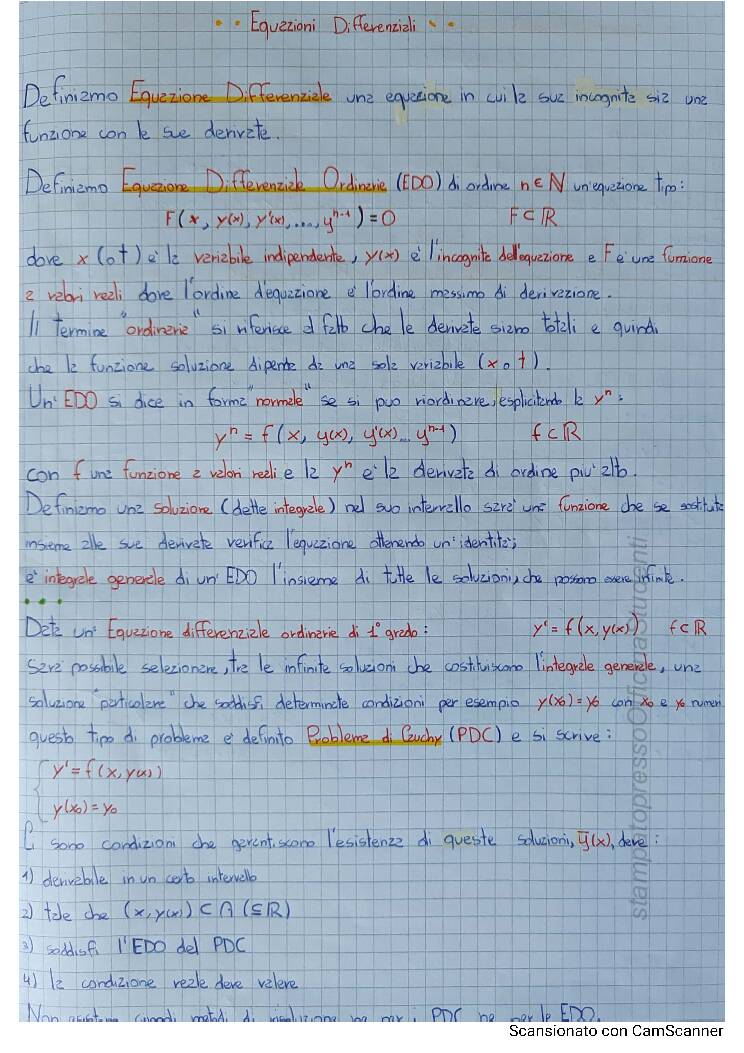 Equazioni Differenziali
Definiamo Equazione Differenziale una equazione in cui la sua incognita sia una
funzione con le sue derivate.
Definiamo Equazione Differenziale Ordinaria (EDO) di ordine n ∈ ℕ un'equazione tipo:
F(x, y(x), y'(x), ..., yⁿ⁻¹) = 0 F ⊂ ℝ
dove x (o t) è la variabile indipendente, y(x) è l'incognita dell'equazione e F è una funzione
a valori reali dove l'ordine d'equazione è l'ordine massimo di derivazione.
Il termine "ordinaria" si riferisce al fatto che le derivate siano totali e quindi
che la funzione soluzione dipenda da una sola variabile (x o t).
Un' EDO si dice in forma "normale" se si può riordinare, esplicitando la yⁿ:
yⁿ = f(x, y(x), y'(x)... yⁿ⁻¹) f ⊂ ℝ
con f una funzione a valori reali e la yⁿ è la derivata di ordine più alto.
Definiamo una soluzione (detta integrale) nel suo intervallo sarà una funzione che se sostituta
insieme alle sue derivate verifica l'equazione ottenendo un'identità;
è integrale generale di un' EDO l'insieme di tutte le soluzioni, che possono essere infinite.
Data un' Equazione differenziale ordinaria di 1° grado: y' = f(x, y(x)) f ⊂ ℝ
Sarà possibile selezionare, tra le infinite soluzioni che costituiscono l'integrale generale, una
soluzione "particolare" che soddisfi determinate condizioni per esempio y(x₀) = y₀ con x₀ e y₀ numeri
questo tipo di problema è definito Problema di Cauchy (PDC) e si scrive:
y' = f(x, y(x))
y(x₀) = y₀
Ci sono condizioni che garantiscono l'esistenza di queste soluzioni, ȳ(x), deve:
1) derivabile in un certo intervallo
2) tale che (x, y(x)) ⊂ A (⊆ ℝ)
3) soddisfi l'EDO del PDC
4) la condizione reale deve valere
PDC ne per le EDO.
stampatopressoOfficinaStudenti
Scansionato con CamScanner